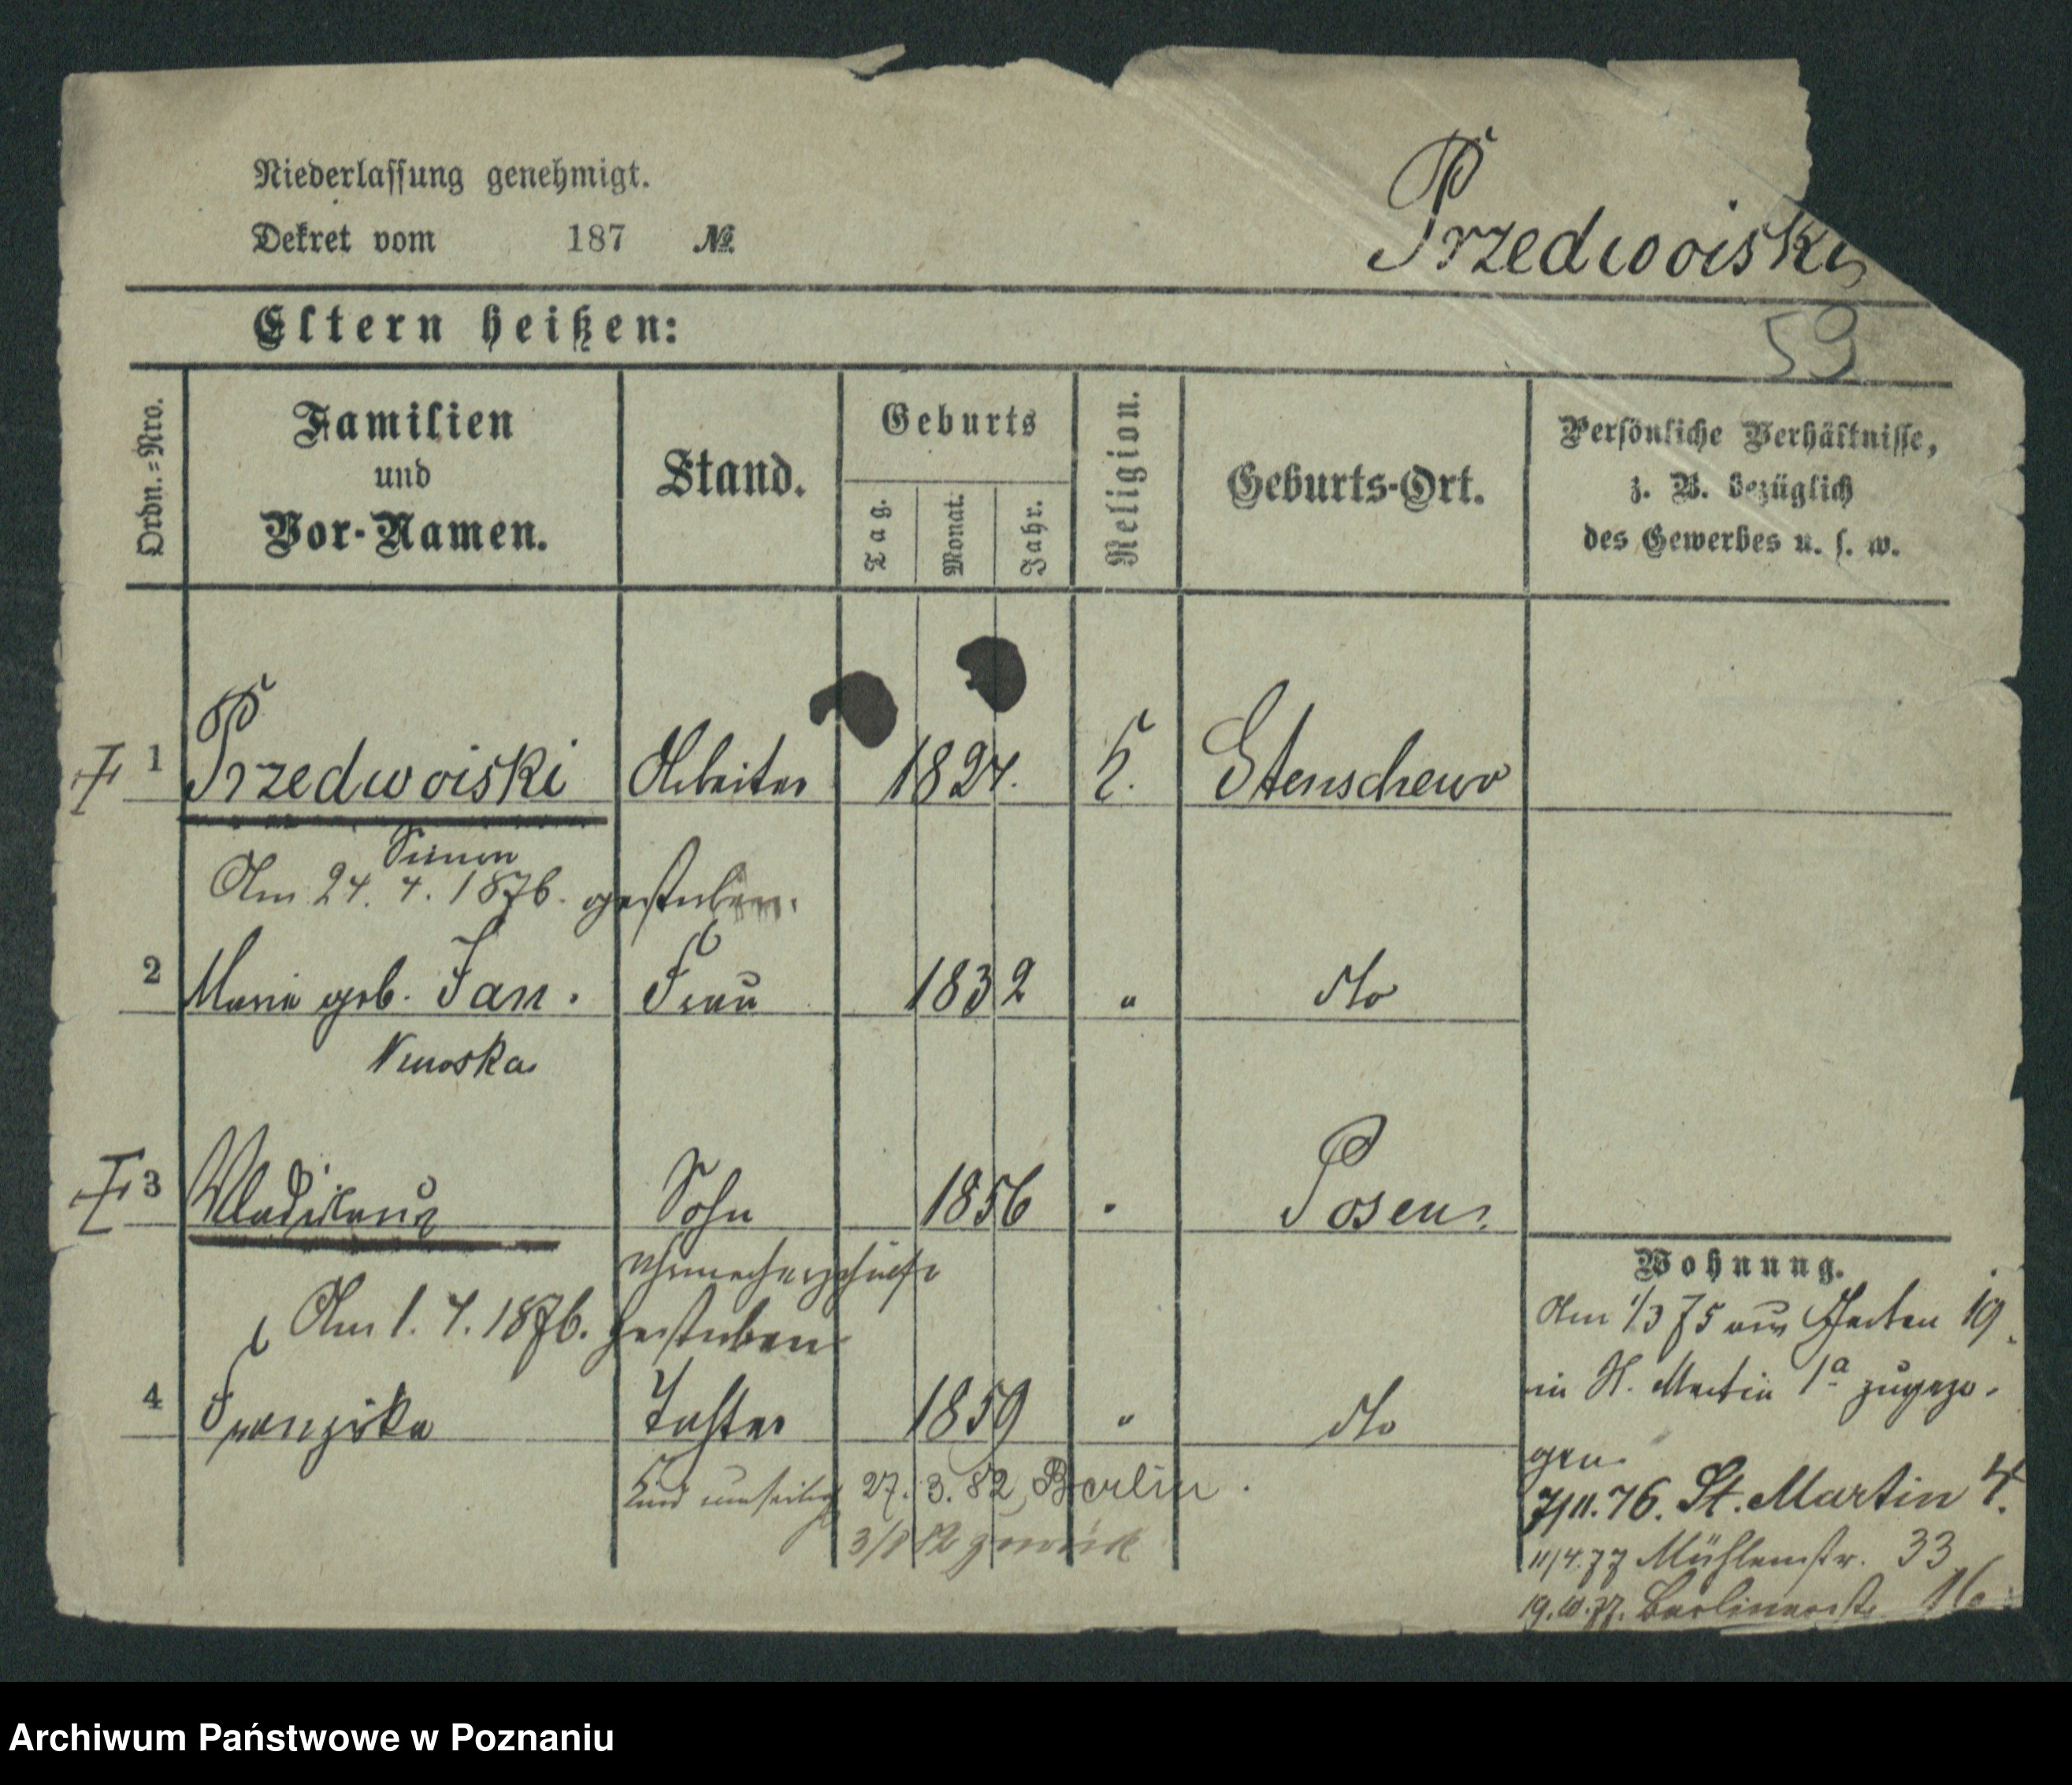 Niederlassung genehmigt.
Dekret vom 187 №
Przedwoiski
53
Eltern heißen:
Ordn.=Nro.
Familien
und
Vor-Namen.
Stand.
Geburts
Tag.
Monat.
Jahr.
Religion.
Geburts-Ort.
Persönliche Verhältnisse,
z. B. bezüglich
des Gewerbes u. s. w.
1 Przedwoiski Arbeiter 1824. k. Stenschewo
Simon
Am 24. 4. 1876. gestorben.
2 Maria geb. Jan. Frau 1832 " dto
3 Sohn 1856 Posen
Am 1. 4. 1876. gestorben
4 Franziska Tochter 1859 " dto
27. 3. 82, Berlin.
3/8 82 zurück
Wohnung.
Am 1/3 75 aus Garten 19
in St. Martin 1a zugezo-
gen.
7/11. 76. St. Martin 4.
11/4. 77 Mühlenstr. 33
19. 10. 77. Berlinerstr. 16
Archiwum Państwowe w Poznaniu